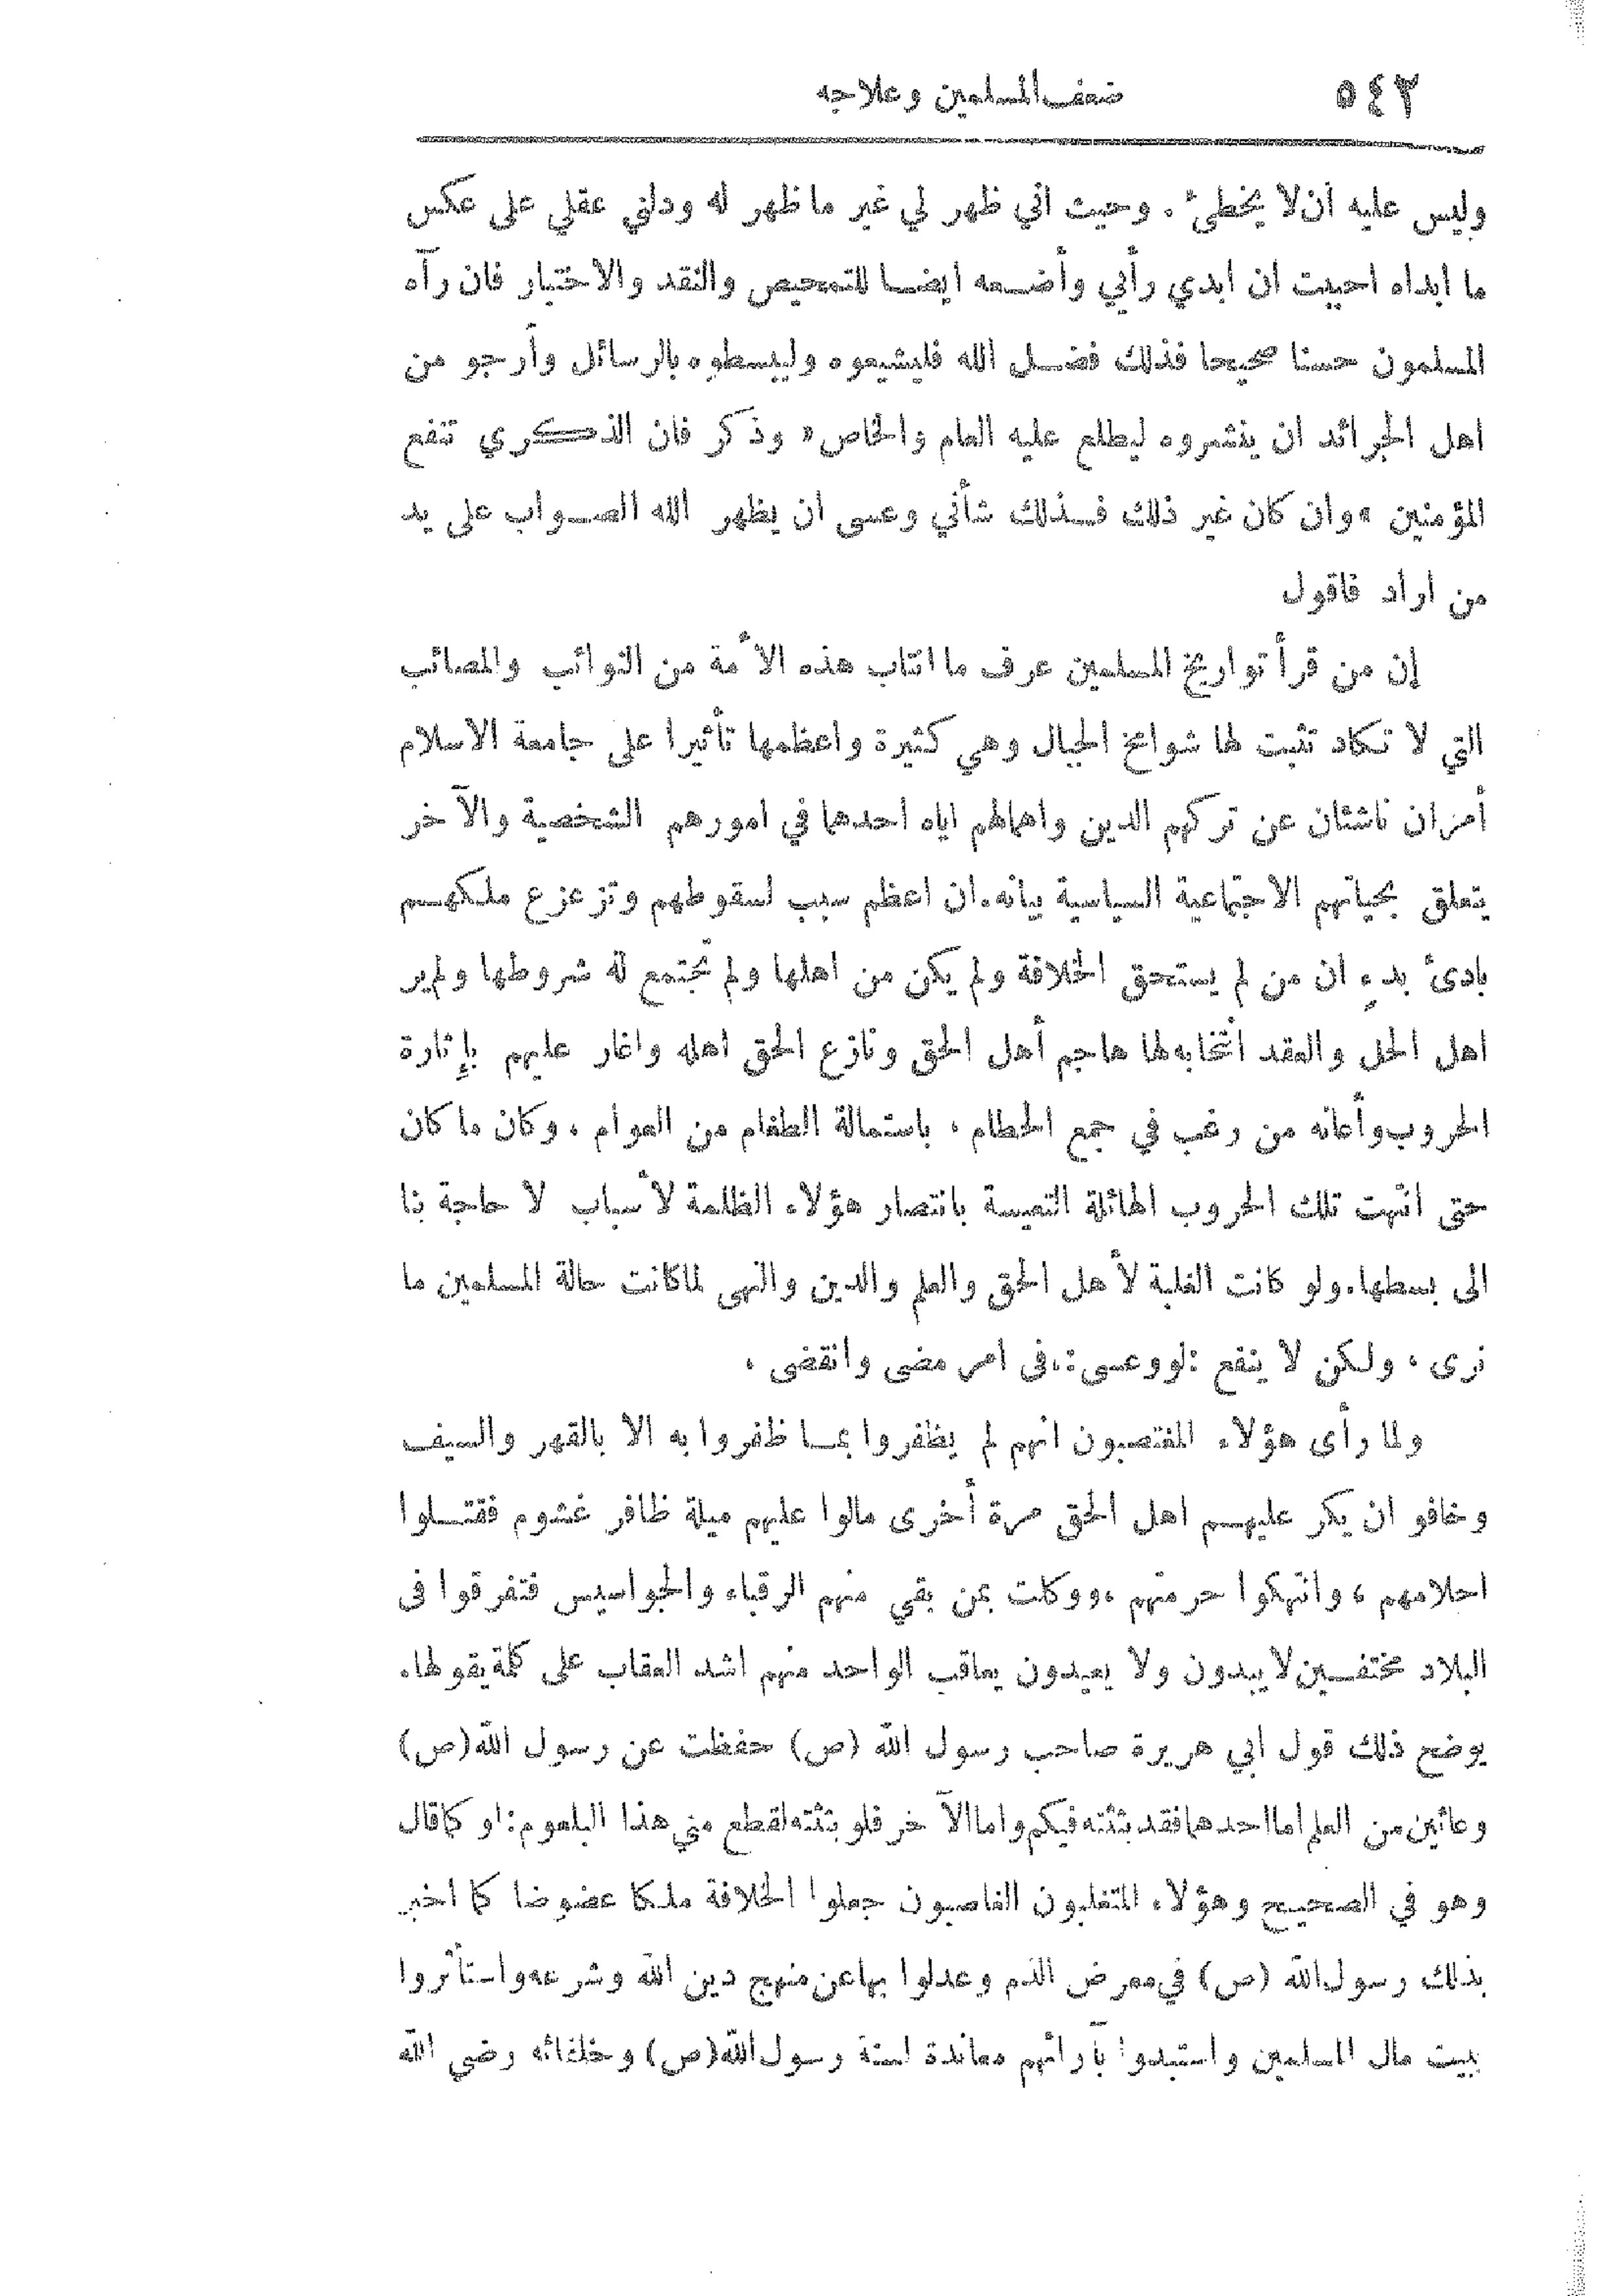 ٥٤٢ ضعف المسلمين وعلاجه
وليس عليه أن لا يخطئ . وحيت اني ظهر لي غير ما ظهر له ودلني عقلي على عكس
ما ابداه احببت ان ابدي رأيي وأضعه ايضا للتمحيص والنقد والاختبار فان رآه
المسلمون حسنا صحيحا فذلك فضل الله فليشيعوه وليبسطوه بالرسائل وأرجو من
اهل الجرائد ان ينشروه ليطلع عليه العام والخاص « وذكر فان الذكرى تنفع
المؤمنين » وان كان غير ذلك فذلك شأني وعسى ان يظهر الله الصواب على يد
من اراد فاقول
إن من قرأ تواريخ المسلمين عرف ما انتاب هذه الأمة من النوائب والمصائب
التي لا تكاد تثبت لها شوامخ الجبال وهي كثيرة واعظمها تأثيرا على جامعة الاسلام
أمران ناشئان عن تركهم الدين واهمالهم اياه احدهما في امورهم الشخصية والآخر
يتعلق بحياتهم الاجتماعية السياسية بيانه . ان اعظم سبب لسقوطهم وتزعزع ملكهم
بادئ بدءٍ ان من لم يستحق الخلافة ولم يكن من اهلها ولم تجتمع له شروطها ولم ير
اهل الحل والعقد انتخابه لها هاجم أهل الحق ونازع الحق اهله واغار عليهم بإثارة
الحروب وأعانه من رغب في جمع الحطام ، باستمالة الطغام من العوام ، وكان ما كان
حتى انتهت تلك الحروب الهائلة التعيسة بانتصار هؤلاء الظلمة لأسباب لا حاجة بنا
الى بسطها . ولو كانت الغلبة لأهل الحق والعلم والدين والنهى لما كانت حالة المسلمين ما
نرى ، ولكن لا ينفع : لو وعسى : ، فى امر مضى وانقضى ،
ولما رأى هؤلاء المغتصبون انهم لم يظفروا بما ظفروا به الا بالقهر والسيف
وخافو ان يكر عليهم اهل الحق مرة أخرى مالوا عليهم ميلة ظافر غشوم فقتلوا
احلامهم ، وانتهكوا حرمتهم ، ووكلت بمن بقي منهم الرقباء والجواسيس فتفرقوا فى
البلاد مختفين لا يبدون ولا يعيدون يعاقب الواحد منهم اشد العقاب على كلمة يقولها .
يوضح ذلك قول ابي هريرة صاحب رسول الله (ص) حفظت عن رسول الله (ص)
وعائين من العلم اما احدهما فقد بثثته فيكم واما الآخر فلو بثثته لقطع مني هذا البلعوم : او كما قال
وهو في الصحيح وهؤلاء المتغلبون الغاصبون جعلوا الخلافة ملكا عضوضا كما اخبر
بذلك رسول الله (ص) في معرض الذم وعدلوا بها عن منهج دين الله وشرعه واستأثروا
ببيت مال المسلمين واستبدوا بآرائهم معاندة لسنة رسول الله (ص) وخلفائه رضي الله